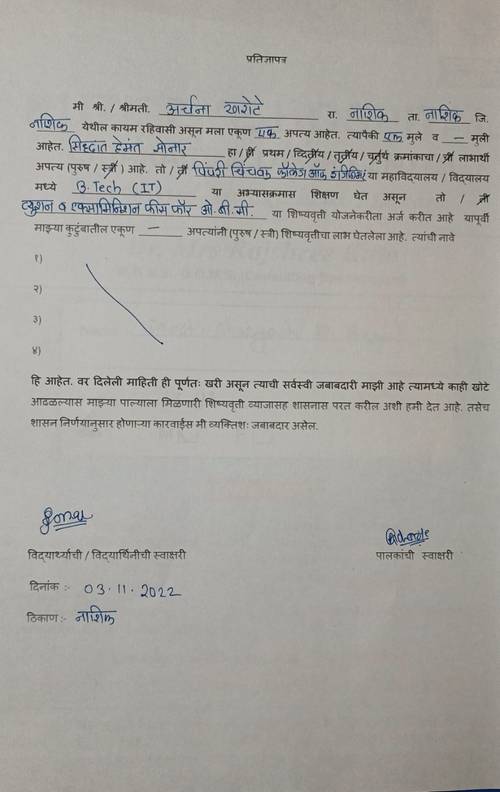 प्रतिज्ञापत्र
मी श्री. / श्रीमती. अर्चना खरोटे रा. नाशिक ता. नाशिक जि.
नाशिक येथील कायम रहिवासी असून मला एकूण एक अपत्य आहेत. त्यापैकी एक मुले व — मुली
आहेत. सिद्धांत हेमंत सोनार हा / ही प्रथम / द्वितीय / तृतीय / चतुर्थ क्रमांकाचा / ची लाभार्थी
अपत्य (पुरुष / स्त्री) आहे. तो / ती पिंपरी चिंचवड कॉलेज ऑफ इंजिनिअरिंग या महाविद्यालय / विद्यालय
मध्ये B.Tech (IT) या अभ्यासक्रमास शिक्षण घेत असून तो / ती
ट्युशन व एक्सामिनेशन फीस फॉर ओ.बी.सी. या शिष्यवृती योजनेकरीता अर्ज करीत आहे यापूर्वी
माझ्या कुटुंबातील एकूण — अपत्यांनी (पुरुष / स्त्री) शिष्यवृत्तीचा लाभ घेतलेला आहे. त्यांची नावे
१)
२)
३)
४)
हि आहेत. वर दिलेली माहिती ही पूर्णतः खरी असून त्याची सर्वस्वी जबाबदारी माझी आहे त्यामध्ये काही खोटे
आढळल्यास माझ्या पाल्याला मिळणारी शिष्यवृती व्याजासह शासनास परत करील अशी हमी देत आहे. तसेच
शासन निर्णयानुसार होणाऱ्या कारवाईस मी व्यक्तिशः जबाबदार असेल.
विद्यार्थ्याची / विद्यार्थिनीची स्वाक्षरी पालकांची स्वाक्षरी
दिनांक :- 03.11.2022
ठिकाण:- नाशिक